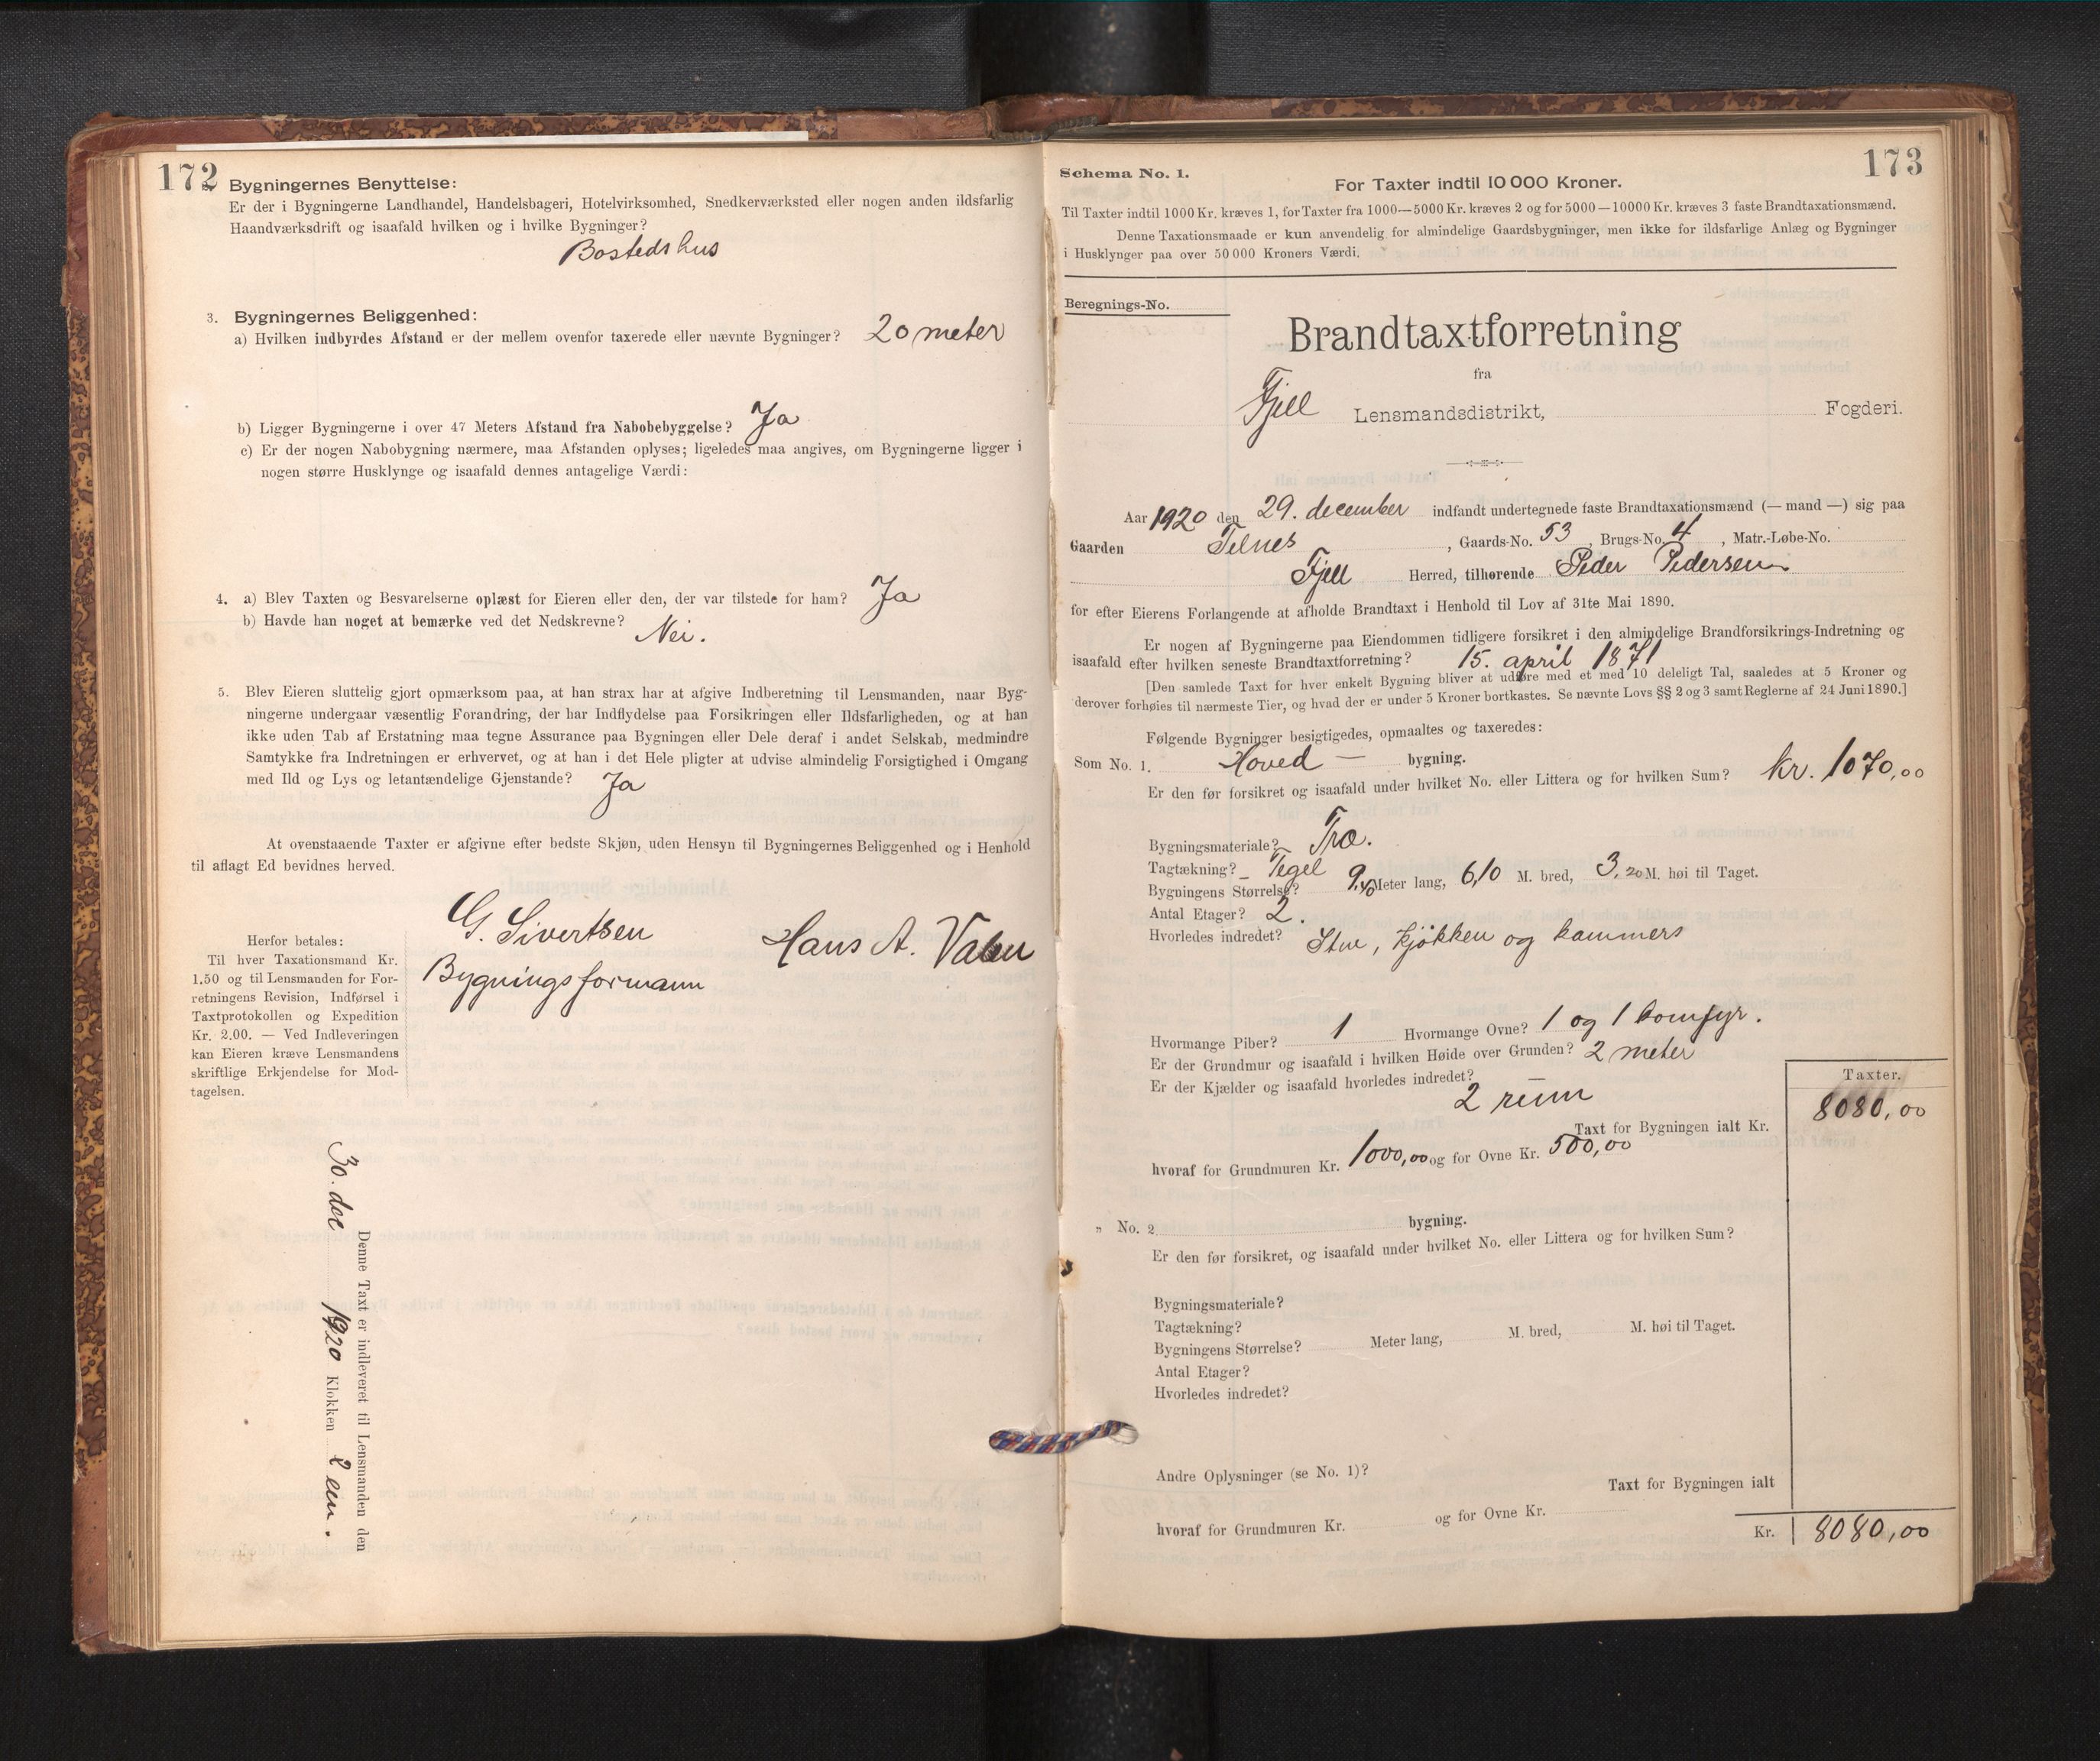 172
Bygningernes Benyttelse:
Er der i Bygningerne Landhandel, Handelsbageri, Hotelvirksomhed, Snedkerværksted eller nogen anden ildsfarlig
Haandværksdrift og isaafald hvilken og i hvilke Bygninger?
Bostedshus
3. Bygningernes Beliggenhed:
a) Hvilken indbyrdes Afstand er der mellem ovenfor taxerede eller nævnte Bygninger? 20 meter
b) Ligger Bygningerne i over 47 Meters Afstand fra Nabobebyggelse? Ja
c) Er der nogen Nabobygning nærmere, maa Afstanden oplyses; ligeledes maa angives, om Bygningerne ligger i
nogen større Husklynge og isaafald dennes antagelige Værdi:
4. a) Blev Taxten og Besvarelserne oplæst for Eieren eller den, der var tilstede for ham? Ja
b) Havde han noget at bemærke ved det Nedskrevne? Nei.
5. Blev Eieren sluttelig gjort opmærksom paa, at han strax har at afgive Indberetning til Lensmanden, naar Byg-
ningerne undergaar væsentlig Forandring, der har Indflydelse paa Forsikringen eller Ildsfarligheden, og at han
ikke uden Tab af Erstatning maa tegne Assurance paa Bygningen eller Dele deraf i andet Selskab, medmindre
Samtykke fra Indretningen er erhvervet, og at han i det Hele pligter at udvise almindelig Forsigtighed i Omgang
med Ild og Lys og letantændelige Gjenstande? Ja
At ovenstaaende Taxter er afgivne efter bedste Skjøn, uden Hensyn til Bygningernes Beliggenhed og i Henhold
til aflagt Ed bevidnes herved.
G. Sivertsen
Bygningsformann
Hans A. Valen
Herfor betales:
Til hver Taxationsmand Kr.
1.50 og til Lensmanden for For-
retningens Revision, Indførsel i
Taxtprotokollen og Expedition
Kr. 2.00. — Ved Indleveringen
kan Eieren kræve Lensmandens
skriftlige Erkjendelse for Mod-
tagelsen.
Denne Taxt er indleveret til Lensmanden den
30. dec 1920 Klokken 2 em.
173
Schema No. 1.
For Taxter indtil 10 000 Kroner.
Til Taxter indtil 1000 Kr. kræves 1, for Taxter fra 1000—5000 Kr. kræves 2 og for 5000—10000 Kr. kræves 3 faste Brandtaxationsmænd.
Denne Taxationsmaade er kun anvendelig for almindelige Gaardsbygninger, men ikke for ildsfarlige Anlæg og Bygninger
i Husklynger paa over 50 000 Kroners Værdi.
Beregnings-No.
Brandtaxtforretning
fra
Fjell Lensmandsdistrikt, Fogderi.
Aar 1920 den 29. december indfandt undertegnede faste Brandtaxationsmænd (— mand —) sig paa
Gaarden Telnes, Gaards-No. 53, Brugs-No. 4, Matr.-Løbe-No.
Fjell Herred, tilhørende Peder Pedersen
for efter Eierens Forlangende at afholde Brandtaxt i Henhold til Lov af 31te Mai 1890.
Er nogen af Bygningerne paa Eiendommen tidligere forsikret i den almindelige Brandforsikrings-Indretning og
isaafald efter hvilken seneste Brandtaxtforretning? 15. april 1871
[Den samlede Taxt for hver enkelt Bygning bliver at udføre med et med 10 deleligt Tal, saaledes at 5 Kroner og
derover forhøies til nærmeste Tier, og hvad der er under 5 Kroner bortkastes. Se nævnte Lovs §§ 2 og 3 samt Reglerne af 24 Juni 1890.]
Følgende Bygninger besigtigedes, opmaaltes og taxeredes:
Som No. 1. Hoved — bygning.
Er den før forsikret og isaafald under hvilket No. eller Littera og for hvilken Sum? kr. 1070,00
Bygningsmateriale? Træ.
Tagtækning? Tegel
Bygningens Størrelse? 9,40 Meter lang, 6,10 M. bred, 3,20 M. høi til Taget.
Antal Etager? 2.
Hvorledes indredet? Stue, kjøkken og kammers
Hvormange Piber? 1 Hvormange Ovne? 1 og 1 komfyr.
Er der Grundmur og isaafald i hvilken Høide over Grunden? 2 meter
Er der Kjælder og isaafald hvorledes indredet?
2 rum
Taxter.
Taxt for Bygningen ialt Kr. 8080,00
hvoraf for Grundmuren Kr. 1000,00 og for Ovne Kr. 500,00
„ No. 2 bygning.
Er den før forsikret, og isaafald under hvilket No. eller Littera og for hvilken Sum?
Bygningsmateriale?
Tagtækning?
Bygningens Størrelse? Meter lang, M. bred, M. høi til Taget.
Antal Etager?
Hvorledes indredet?
Andre Oplysninger (se No. 1)?
Taxt for Bygningen ialt
hvoraf for Grundmuren Kr. og for Ovne Kr.
Kr. 8080,00